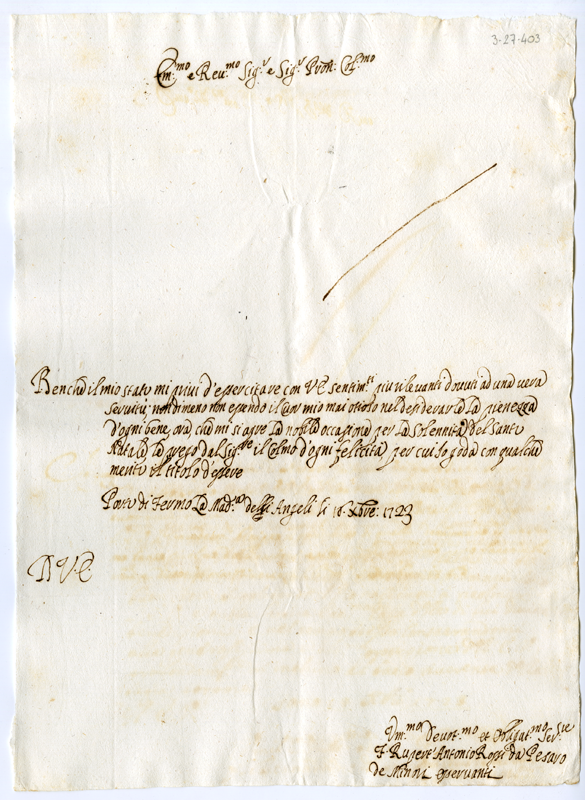 3-27-403
Em.mo e Reu.mo Sig.r e Sig.r Pron: Col.mo
Benche il mio stato mi priui d'esercitare con VE sentim.ti piu rileuanti douuti ad una uera
seruitu; nondimeno non essendo il Cor mio mai otioso nel desiderarLe La pienezza
d'ogni bene, ora, che mi si apre La nobile occasione per La Solennita del Santo
Natale La prego dal Sig.re il Colmo d'ogni felicita, per cui Io goda con qualche
merito il titolo d'essere
Porto di Fermo La Mad.na degli Angeli li 16. Xbre: 1723
D V.E.
Um.mo Deuot.mo et Obligat.mo Ser.re
F. Rupert' Antonio Rossi da Pesaro
de Minori osseruanti